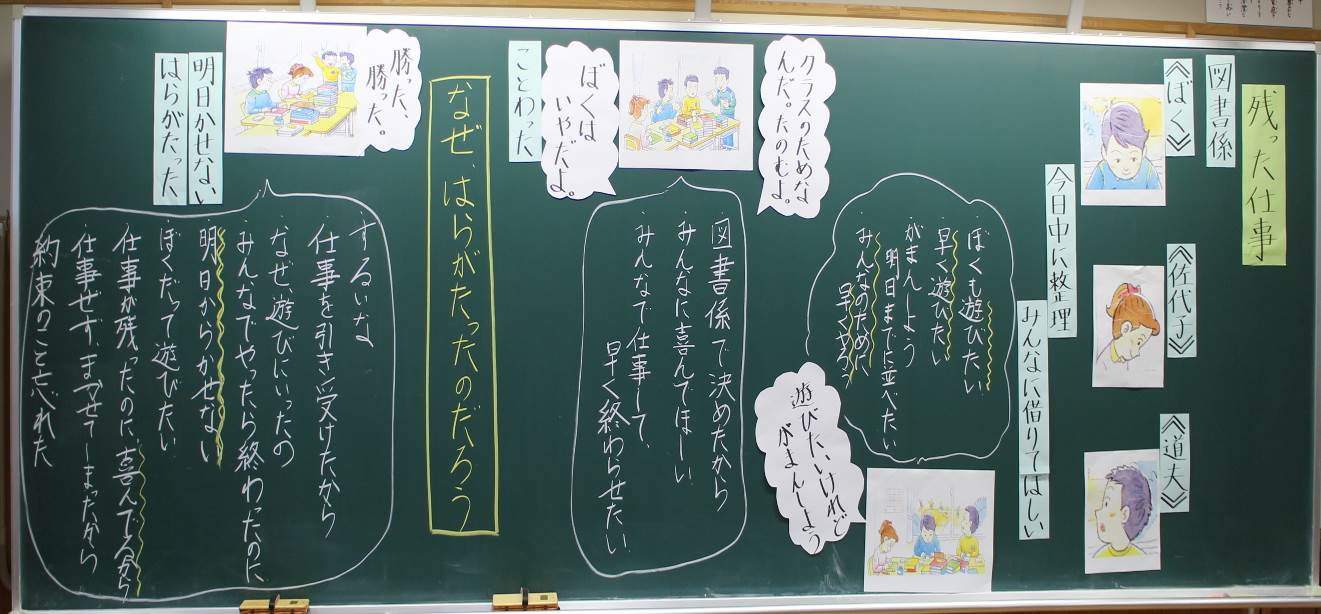 残った仕事
図書係
《ぼく》
《佐代子》
《道夫》
今日中に整理
みんなに借りてほしい
・ぼくも遊びたい
早く遊びたい
がまんしよう
・明日までに並べたい
・みんなのために
早くやろう
遊びたいけれど
がまんしよう
クラスのためな
んだ。たのむよ。
・図書係で決めたから
・みんなに喜んでほしい
・みんなで仕事して、
早く終わらせたい
ぼくは
いやだよ。
ことわった
なぜ、はらがたったのだろう
勝った、
勝った。
明日かせない
はらがたった
・ずるいな
・仕事を引き受けたから
・なぜ、遊びにいったの
・みんなでやったら終わったのに
明日からかせない
・ぼくだって遊びたい
・仕事が残ったのに、喜んでるから
・仕事せず、まかせてしまったから
・約束のこと忘れた